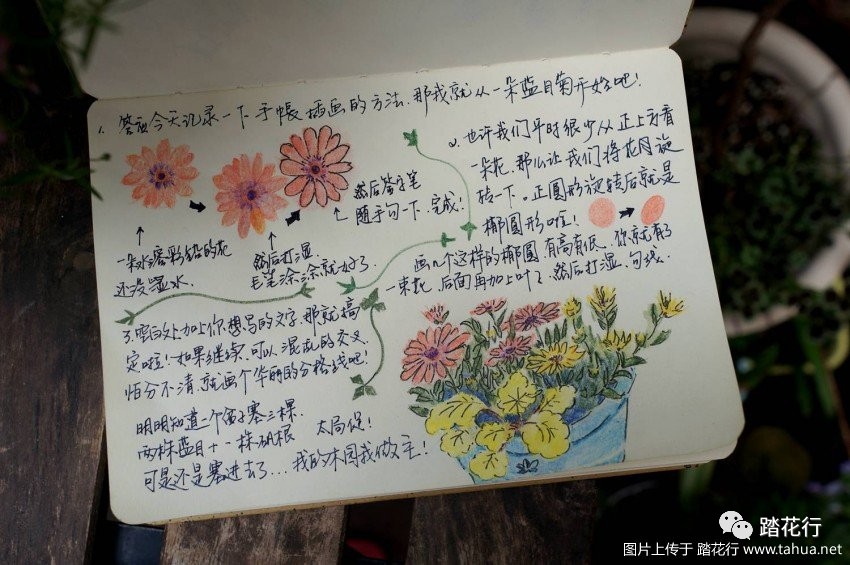 1. 答应今天记录一下手帐插画的方法.那我就从一朵蓝目菊开始吧!
一朵水溶彩铅的花
还没湿水.
然后打湿.
毛笔涂涂就好了
然后签字笔
随手勾一下.完成!
2.也许我们平时很少从正上方看
一朵花.那么让我们将花朵旋
转一下。正圆形旋转后就是
椭圆形啦!
画几个这样的椭圆.有高有低.你就有了
一束花.后面再加上叶子.然后打湿.勾线.
3.空白处加上你想写的文字.那就搞
定啦!如果继续.可以混乱的交叉
怕分不清.就画个华丽的分格线吧!
明明知道一个盆子塞三棵.
两株蓝目+一株 太局促!
可是还是塞进去了...我的木园我做主!
踏花行
图片上传于 踏花行 www.tahua.net